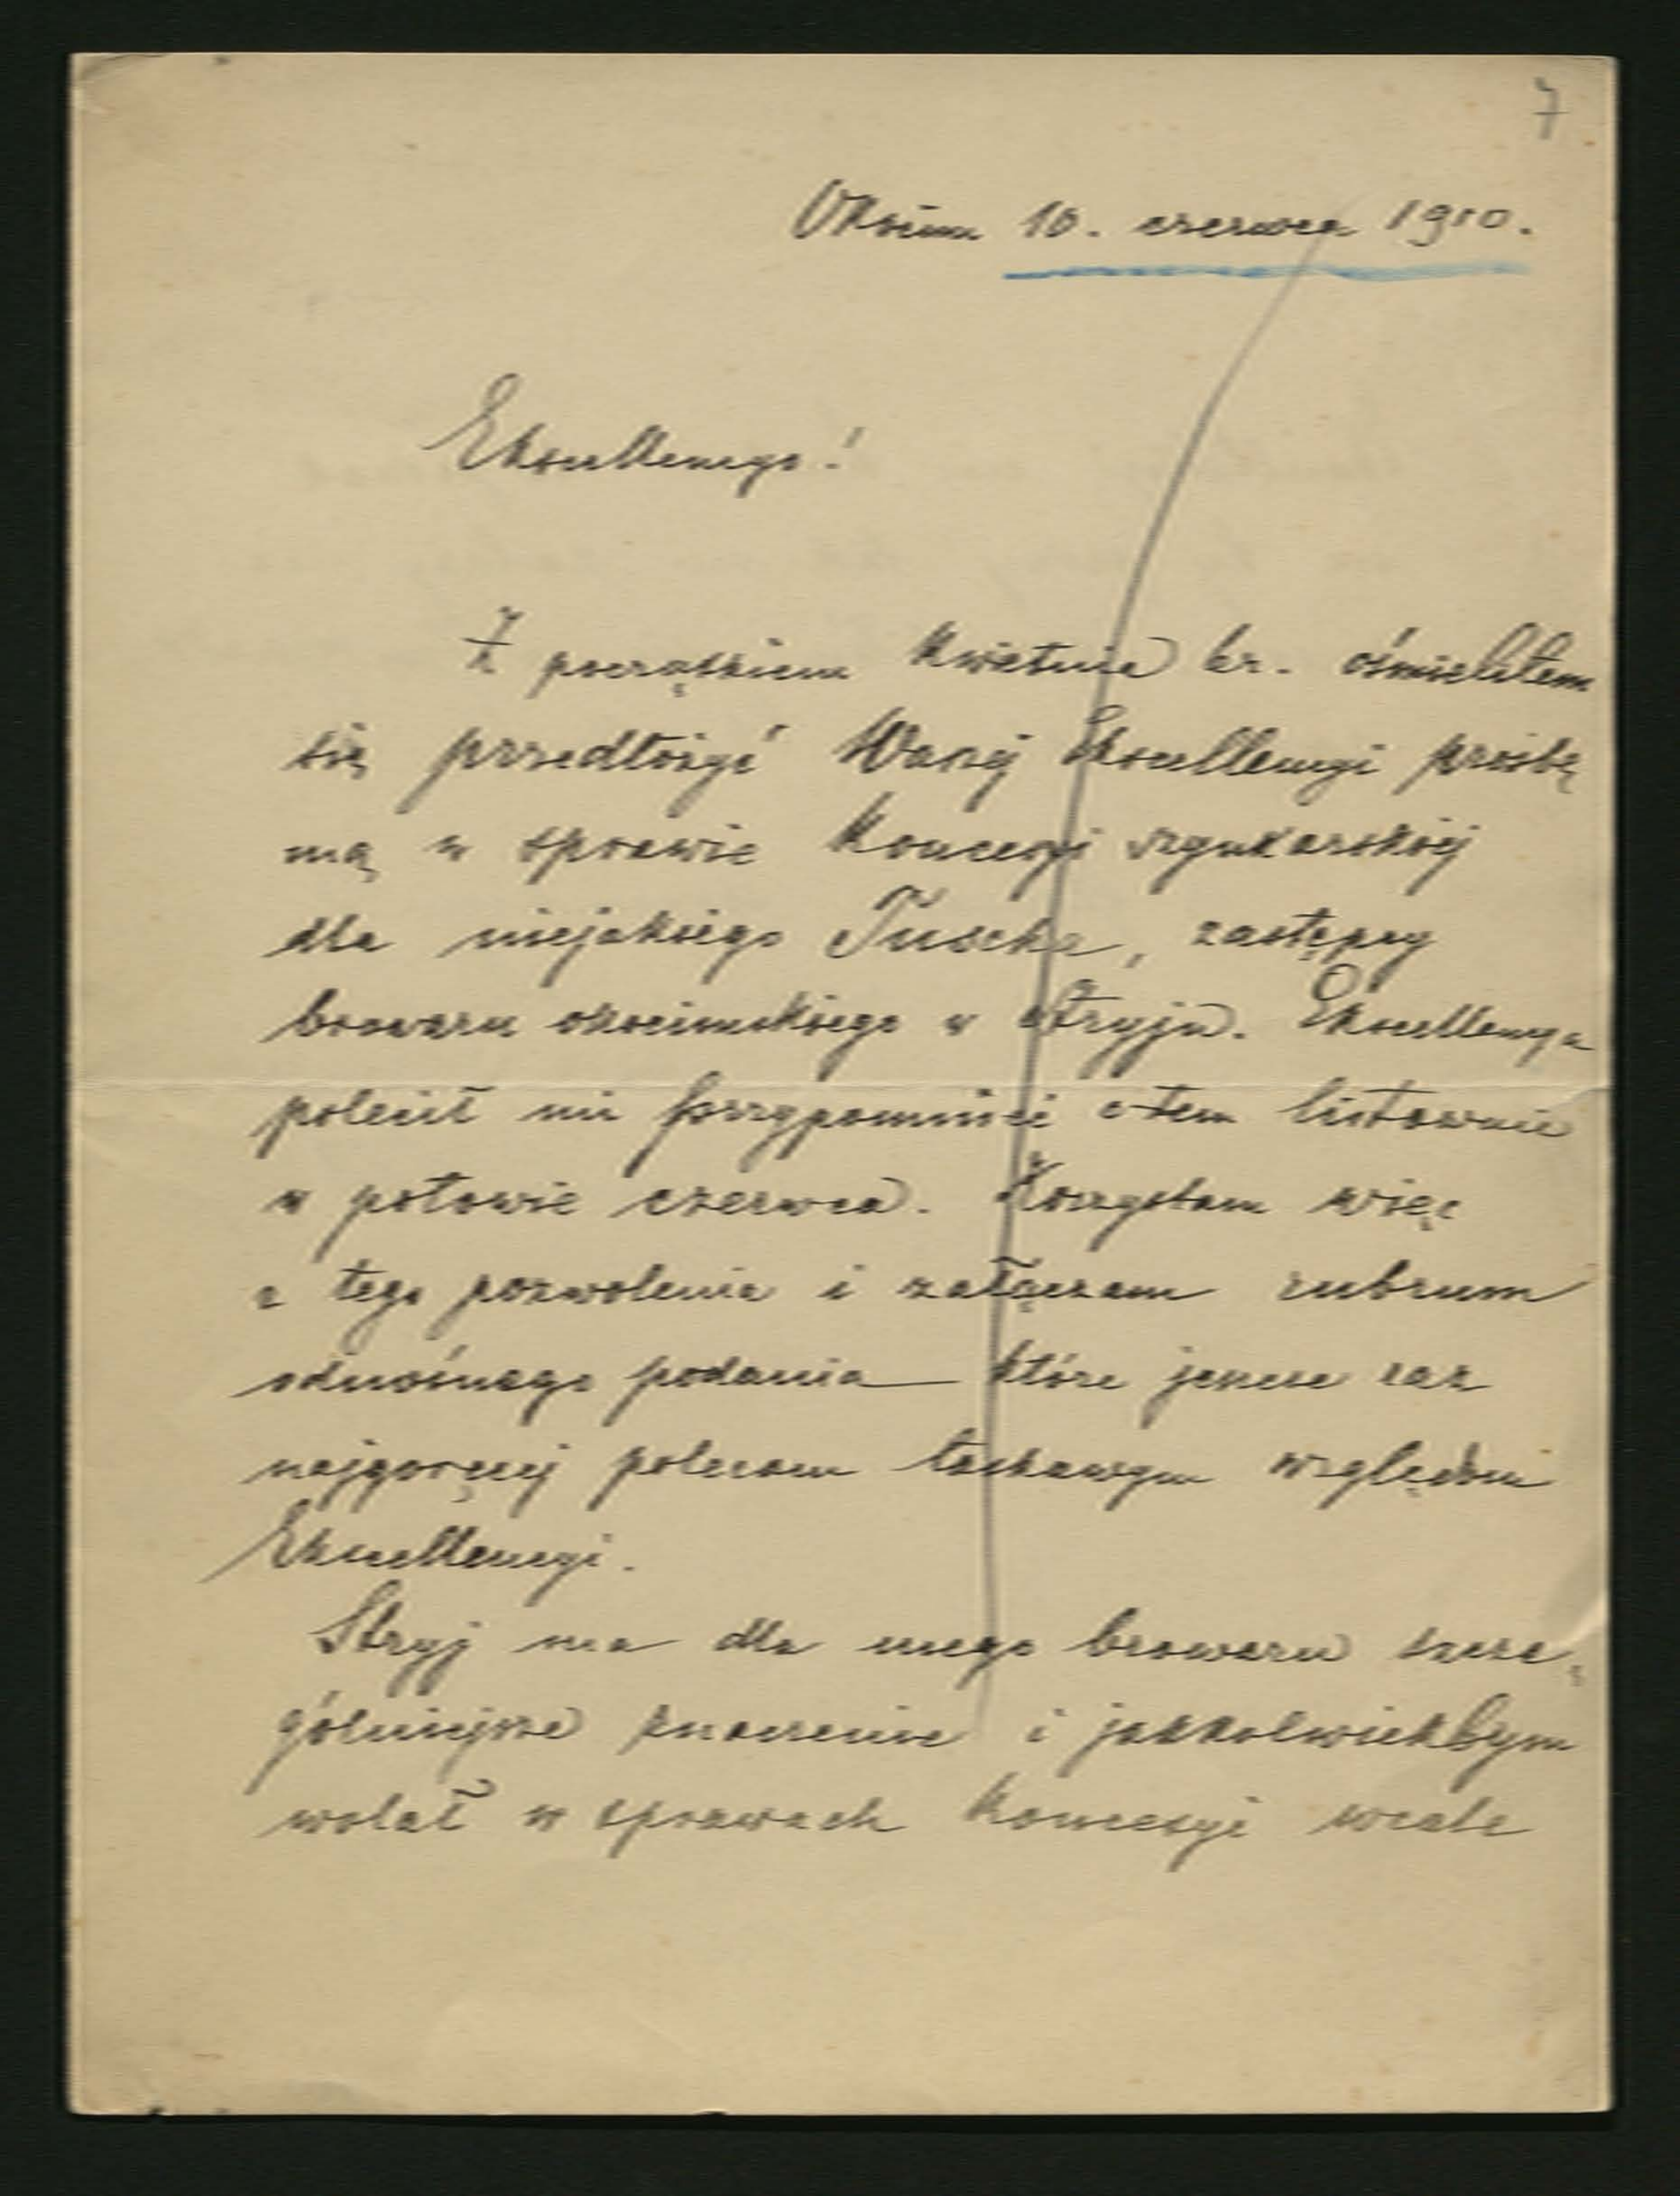 7
Okocim 10. czerwca 1910.
Ekscellencyo!
Z początkiem kwietnia br. ośmieliłem
się przedłożyć Waszej Ekscellencyi prośbę
mą w sprawie koncesyi szynkarskiej
dla niejakiego Tuscha, zastępcy
browaru okocimskiego w Stryju. Ekscellencya
polecił mi przypomnieć o tem listownie
w połowie czerwca. Korzystam więc
z tego pozwolenia i załączam rubrum
odnośnego podania – które jeszcze raz
najgoręcej polecam łaskawym względom
Ekscellencyi.
Stryj ma dla mego browaru szcze-
gólniejsze znaczenie i jakkolwiekbym
wolał w sprawach koncesyi wcale